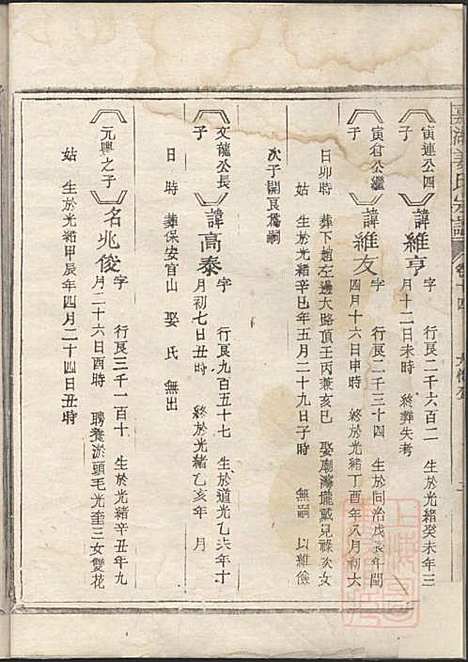 寅連公四子
諱維亨
字 行良二千六百二 生於光緒癸未年三
月十二日未時 終葬失考
寅倉公繼子
諱維友
字 行良二千三十四 生於同治戊辰年閏
四月十六日申時 終於光緒丁酉年八月初六
日卯時 葬下趙左邊大路頂王丙兼亥巳 娶廟灣壠戴兒祿次女
姑 生於光緒辛巳年五月二十九日子時 無嗣 以維儉
次子開良為嗣
文龍公長子
諱高泰
字 行良九百五十七 生於道光乙未年十
月初七日丑時 終於光緒乙亥年 月
日時 葬保安官山 娶 氏 無出
元興之子
名兆俊
字 行良三千一百十 生於光緒辛丑年九
月二十六日酉時 聘養淤頭毛光奎三女雙花
姑 生於光緒甲辰年四月二十四日丑時
姜氏宗譜
卷十四